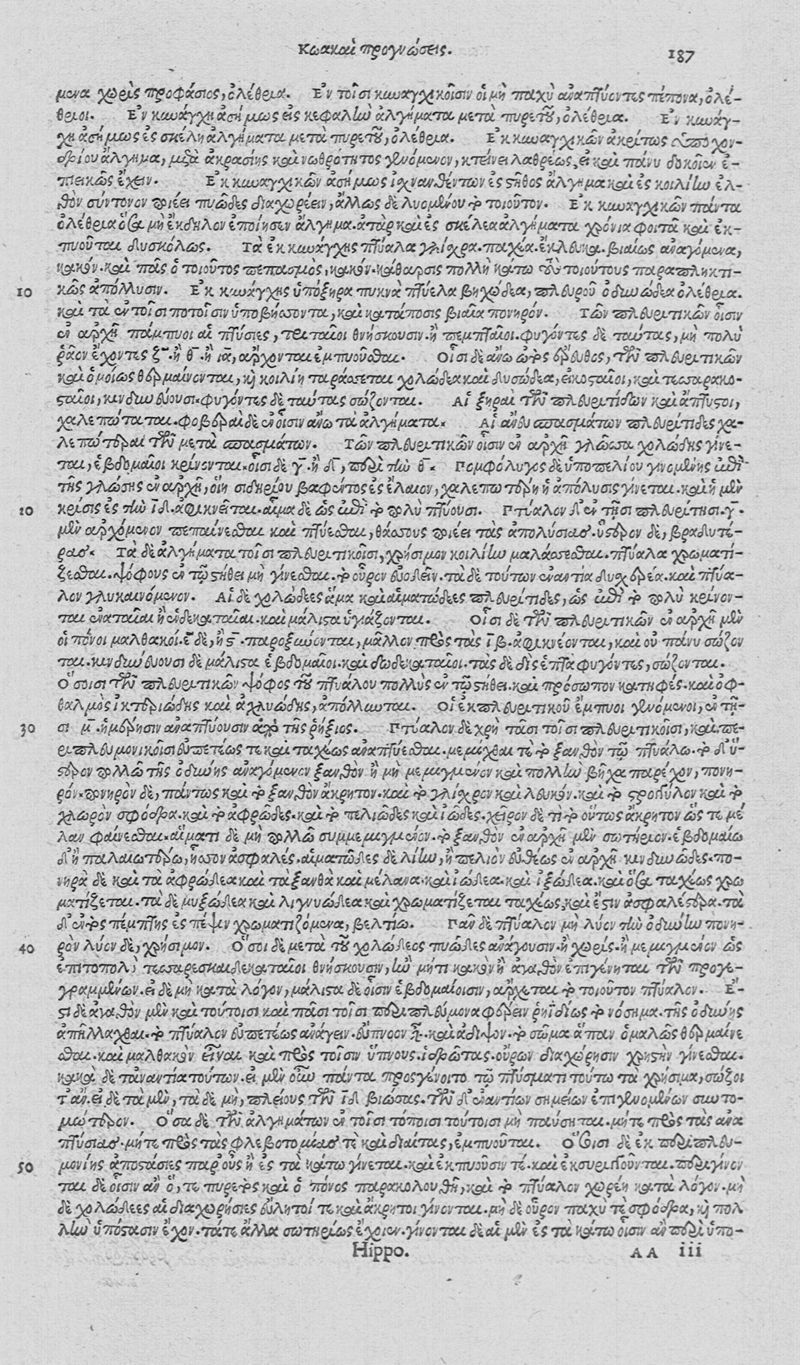 Κωακαὶ προγνώσεις. 187
μενα χωρὶς προφάσιος, ὀλέθρια. Ἐν τοῖσι κυναγχικοῖσιν οἱ μὴ παχὺ ἀναπτύοντες πέπονα, ὀλέ-
θριοι. Ἐν κυνάγχῃ ἀσήμως εἰς κεφαλὴν ἀλγήματα μετὰ πυρετοῦ, ὀλέθρια. Ἐν κυνάγ-
χῃ ἀσήμως ἐς σκέλη ἀλγήματα μετὰ πυρετοῦ, ὀλέθρια. Ἐκ κυναγχικῶν ἀκρίτως ὑποχον-
δρίου ἄλγημα, μετὰ ἀκρασίης καὶ νωθρότητος γενόμενον, κτείνει λαθρέως, εἰ καὶ πάνυ δοκοῖεν ἐ-
πιεικῶς ἔχειν. Ἐκ κυναγχικῶν ἀσήμως ἰσχνανθέντων ἐς στῆθος ἄλγημα καὶ ἐς κοιλίην ἐλ-
θὸν σύντονον ποιέει πυῶδες διαχωρέειν, ἄλλως δὲ λυομένου τὸ τοιοῦτον. Ἐκ κυναγχικῶν πάντα
ὀλέθρια ὅσα μὴ ἔκδηλον ἐποίησεν ἄλγημα. ἀτὰρ καὶ ἐς σκέλεα ἀλγήματα χρόνια φοιτᾷ καὶ ἐκ-
πυοῦται δυσκόλως. Τὰ ἐκ κυνάγχης πτύαλα γλίσχρα. παχέα. ἔκλευκα. βιαίως ἀναγόμενα,
κακόν. καὶ πᾶς ὁ τοιοῦτος πεπασμὸς, κακόν. κάθαρσις πολλὴ κάτω τοὺς τοιούτους παραπληκτι-
10 κῶς ἀπόλλυσιν. Ἐκ κυνάγχης ὑπόξηρα πυκνὰ πτύελα βηχώδεα, πλευροῦ ὀδυνώδεα ὀλέθρια.
καὶ τὰ ἐν τοῖσι ποτοῖσιν ὑποβήσσοντα, καὶ κατάποσις βιαία πονηρόν. Τῶν πλευριτικῶν οἷσιν
ἐν ἀρχῇ πάμπυοι αἱ πτύσιες, τριταῖοι θνήσκουσιν. ἢ πεμπταῖοι. φυγόντες δὲ ταύτας, μὴ πολὺ
ῥᾷον ἔχοντες ζ. ἢ θ. ἢ ια, ἄρχονται ἐμπυοῦσθαι. Οἷσι δὲ ἄνω ψόφος ἔρευθος, τῶν πλευριτικῶν
καὶ ὁμοίως θερμαίνονται, καὶ κοιλίη ταράσσεται χολώδεα καὶ δυσώδεα, εἰκοσταῖοι, καὶ τεσσαρακο-
σταῖοι, κινδυνεύουσι. φυγόντες δὲ ταύτας σώζονται. Αἱ ξηραὶ τῶν πλευριτίδων καὶ ἄπτυστοι,
χαλεπώταται. φοβεραὶ δὲ ἐν οἷσιν ἄνω τὰ ἀλγήματα. Αἱ ἄνευ σπασμάτων πλευρίτιδες χα-
λεπώτεραι τῶν μετὰ σπασμάτων. Τῶν πλευριτικῶν οἷσιν ἐν ἀρχῇ γλῶσσα χολώδης γίνε-
ται, ἑβδομαῖοι κρίνονται. οἷσι δὲ γ. ἢ δ, περὶ τὴν θ. Πομφόλυγος δὲ ὑποπελίου γινομένης ἐπὶ
τῆς γλώσσης ἐν ἀρχῇ, οἵη σιδηρίου βαφέντος ἐς ἔλαιον, χαλεπωτέρη ἡ ἀπόλυσις γίνεται. καὶ ἡ μὲν
10 κρίσις ἐς τὴν ιδ. ἀφικνεῖται. αἷμα δὲ ὡς ἐπὶ τὸ πολὺ πτύουσι. Πτύαλον δ' ἐν τῇσι πλευρίτισι. γ.
μὲν ἀρχόμενον πεπαίνεσθαι καὶ πτύεσθαι, θάσσους ποιέει τὰς ἀπολύσιας. ὕστερον δὲ, βραδυτέ-
ρας. Τὰ δὲ ἀλγήματα τοῖσι πλευριτικοῖσι, χρήσιμον κοιλίην μαλάσσεσθαι. πτύαλα χρωματί-
ζεσθαι. ψόφους ἐν τῷ στήθει μὴ γίνεσθαι. τὸ οὖρον εὐοδεῖν. τὰ δὲ τούτων ἐναντία δυσχερέα. καὶ πτύα-
λον γλυκαινόμενον. Αἱ δὲ χολώδεες ἅμα καὶ αἱματώδεες πλευρίτιδες, ὡς ἐπὶ τὸ πολὺ κρίνον-
ται ἐναταῖαι ἢ ἑνδεκαταῖαι. καὶ μάλιστα ὑγιάζονται. Οἷσι δὲ τῶν πλευριτικῶν ἐν ἀρχῇ μὲν
οἱ πόνοι μαλθακοί. ε δὲ, ἢ ς. παροξύνονται, μᾶλλον πρὸς τὰς ιβ. ἀφικνέονται, καὶ οὐ πάνυ σώζον
ται. κινδυνεύουσι δὲ μάλιστα ἑβδομαῖοι. καὶ δωδεκαταῖοι. τὰς δὲ δὶς ἑπτὰ φυγόντες, σώζονται.
Ὁσοισι τῶν πλευριτικῶν ψόφος τοῦ πτυάλου πολλὺς ἐν τῷ στήθει. καὶ πρόσωπον κατηφές. καὶ ὀφ-
θαλμὸς ἰκτεριώδης καὶ ἀχλυώδης, ἀπόλλυνται. Οἱ ἐκ πλευριτικοῦ ἔμπυοι γενόμενοι, ἐν τῇ-
30 σι μ. ἡμέρῃσιν ἀναπτύουσιν ἀπὸ τῆς ῥήξιος. Πτύαλον δὲ χρὴ πᾶσι τοῖσι πλευριτικοῖσι, καὶ πε-
ριπλευμονικοῖσι εὐπετέως τε καὶ ταχέως ἀναπτύεσθαι. μεμίχθαι τε τὸ ξανθὸν τῷ πτυάλῳ. τὸ δ' ὕ-
στερον πολλῷ τῆς ὀδύνης ἀναγόμενον ξανθὸν ἢ μὴ μεμιγμένον καὶ πολλὴν βῆχα παρέχον, πονη-
ρόν. πονηρὸν δὲ, πάντως καὶ τὸ ξανθὸν ἄκρητον. καὶ τὸ γλίσχρον καὶ λευκόν. καὶ τὸ στρογγύλον καὶ τὸ
χλωρὸν σφόδρα. καὶ τὸ ἀφρῶδες. καὶ τὸ πελιῶδες καὶ ἰῶδες. χεῖρον δέ τι τὸ οὕτως ἄκρητον ὥς τε μέ
λαν φαίνεσθαι. αἵματι δὲ μὴ πολλῷ συμμεμιγμένον. τὸ ξανθὸν ἐν ἀρχῇ μὲν σωτήριον. ἑβδομαίῳ
δ' ἢ παλαιωτέρῳ, ἧσσον ἀσφαλές. αἱματῶδες δὲ λίην, ἢ πέλιον εὐθέως ἐν ἀρχῇ κινδυνῶδες. πο-
νηρὰ δὲ καὶ τὰ ἀφρώδεα καὶ τὰ ξανθὰ καὶ μέλανα. καὶ ἰώδεα. καὶ ἰξώδεα. καὶ ὅσα ταχέως χρω
ματίζεται. τὰ δὲ μυξώδεα καὶ λιγνυώδεα καὶ χρωματίζεται ταχέως. καὶ ἔστιν ἀσφαλέστερα. τὰ
δ' ἐντὸς πέμπτης ἐς πέψιν χρωματιζόμενα, βελτίω. Πᾶν δὲ πτύαλον μὴ λύον τὴν ὀδύνην πονη-
40 ρὸν λύον δὲ, χρήσιμον. Ὅσοι δὲ μετὰ τοῦ χολώδεος πυῶδες ἀνάγουσιν. ἢ χωρὶς. ἢ μεμιγμένον ὡς
ἐπιτοπολὺ τεσσαρεσκαιδεκαταῖοι θνήσκουσιν, ἢν μήτι κακὸν ἢ ἀγαθὸν ἐπιγένηται τῶν προγε-
γραμμένων. εἰ δὲ μὴ κατὰ λόγον, μάλιστα δὲ οἷσιν ἑβδομαίοισιν, ἄρχεται τὸ τοιοῦτον πτύαλον. Ἔ-
στι δὲ ἀγαθὸν μὲν καὶ τούτοισι καὶ πᾶσι τοῖσι περιπλεύμονα φέρειν ῥηϊδίως τὸ νόσημα. τῆς ὀδύνης
ἀπηλλάχθαι. τὸ πτύαλον εὐπετέως ἀνάγειν. εὔπνοον εἶναι καὶ ἄδιψον. τὸ σῶμα ἅπαν ὁμαλῶς θερμαίνε
σθαι. καὶ μαλθακὸν εἶναι καὶ πρὸς τοῖσιν ὕπνους. ἱδρῶτας. οὔρων διαχώρησιν χρηστὴν γίνεσθαι.
κακὰ δὲ τἀναντία τούτων. εἰ μὲν οὖν πάντα προσγένοιτο τῷ πτύσματι τούτῳ τὰ χρήσιμα, σώζοι
τ' ἄν. εἰ δὲ τὰ μὲν, τὰ δὲ μὴ, πλείους τῶν ιδ. βιώσας. τῶν δ' ἐναντίων σημείων ἐπιγενομένων συντο-
μώτερον. Ὅσα δὲ τῶν ἀλγημάτων ἐν τοῖσι τόποισι τούτοισι μὴ παύσηται. μήτε πρὸς τὰς ἀνα
πτύσιας. μήτε πρὸς τὰς φλεβοτομίας τε καὶ διαίτας, ἐμπυοῦται. Ὁϊσι δὲ ἐκ περιπλευ-
50 μονίης ἀποστάσιες παρ' οὖς ἢ ἐς τὰ κάτω γίνεται. καὶ ἐκπυοῦσίν τέ. καὶ ἐκσυριγγοῦνται. περιγίνον
ται δὲ οἷσιν ἂν ὅ, τε πυρετὸς καὶ ὁ πόνος παρακολουθῇ, καὶ τὸ πτύαλον χωρέῃ κατὰ λόγον. μὴ
δὲ χολώδεες αἱ διαχωρήσιες εὔλητοί τε καὶ ἄκρητοι γίνονται. μὴ δὲ οὖρον παχύ τε σφόδρα, καὶ πολ
λὴν ὑπόστασιν ἔχον. τά τε ἄλλα σωτηρίως ἔχοιεν. γίνονται δὲ αἱ μὲν ἐς τὰ κάτω οἷσιν ἂν περὶ ὑπο-
Hippo. AA iii